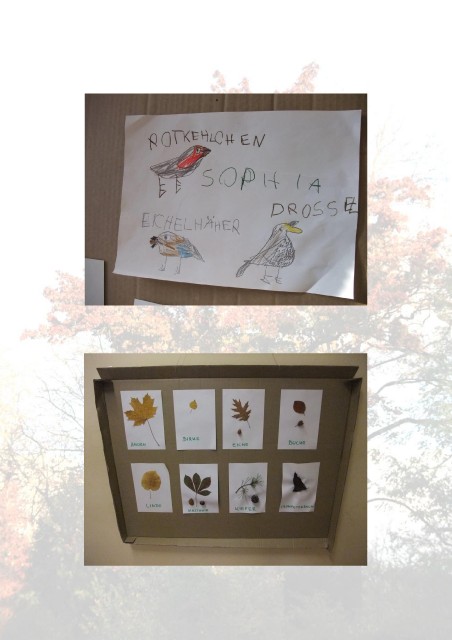 ROTKEHLCHEN
SOPHIA
DROSSEL
EICHELHÄHER
AHORN
BIRKE
EICHE
BUCHE
LINDE
KASTANIE
KIEFER